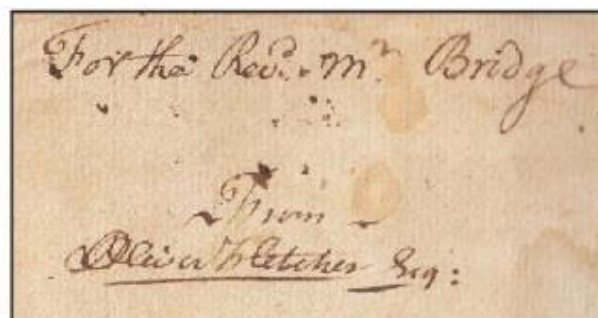 For the Revd. Mr Bridge
From
Oliver Fletcher Esq: